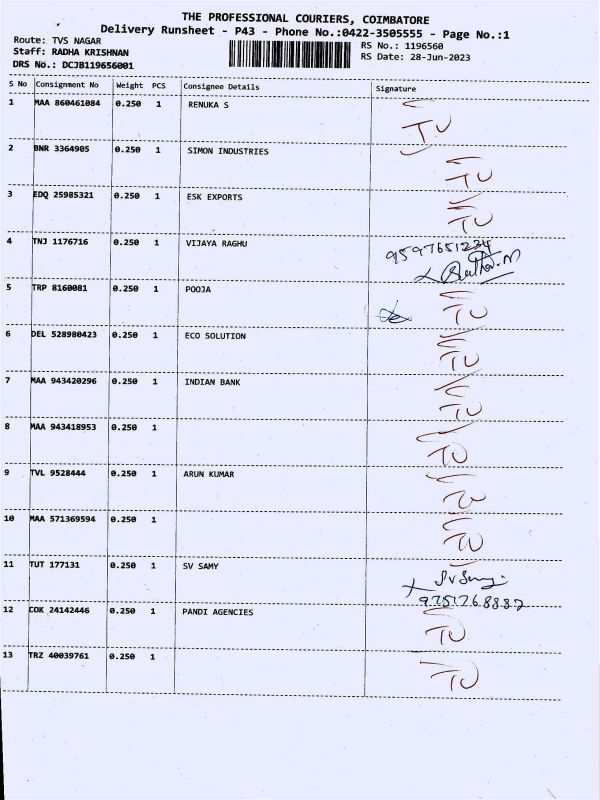 THE PROFESSIONAL COURIERS, COIMBATORE
Delivery Runsheet - P43 - Phone No.:0422-3505555 - Page No.:1
Route: TVS NAGAR
RS No.: 1196560
Staff: RADHA KRISHNAN
RS Date: 28-Jun-2023
DRS No.: DCJB119656001
S No Consignment No Weight PCS Consignee Details Signature
1 MAA 860461084 0.250 1 RENUKA S
TU
2 BNR 3364905 0.250 1 SIMON INDUSTRIES
TU
3 EDQ 25985321 0.250 1 ESK EXPORTS
TU
4 TNJ 1176716 0.250 1 VIJAYA RAGHU
9597651234
5 TRP 8160081 0.250 1 POOJA
TU
6 DEL 528980423 0.250 1 ECO SOLUTION
TU
7 MAA 943420296 0.250 1 INDIAN BANK
TU
8 MAA 943418953 0.250 1
TU
9 TVL 9528444 0.250 1 ARUN KUMAR
TU
10 MAA 571369594 0.250 1
TU
11 TUT 177131 0.250 1 SV SAMY
9751768882
12 COK 24142446 0.250 1 PANDI AGENCIES
TU
13 TRZ 40039761 0.250 1
TU